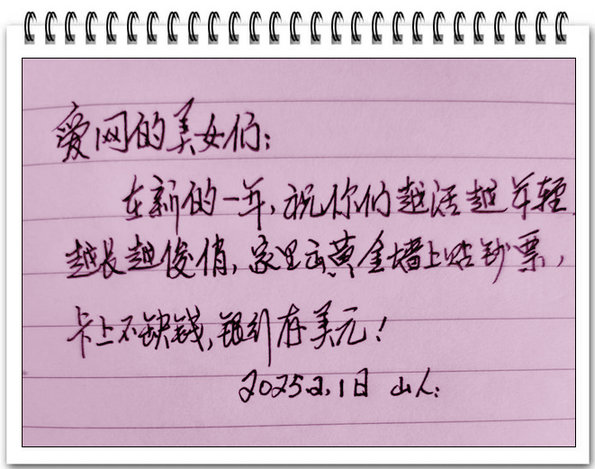 爱网的美女们：
在新的一年，祝你们越活越年轻
越长越俊俏，家里有黄金墙上贴钞票，
卡上不缺钱，银行存美元！
2025.2.1日 山人：